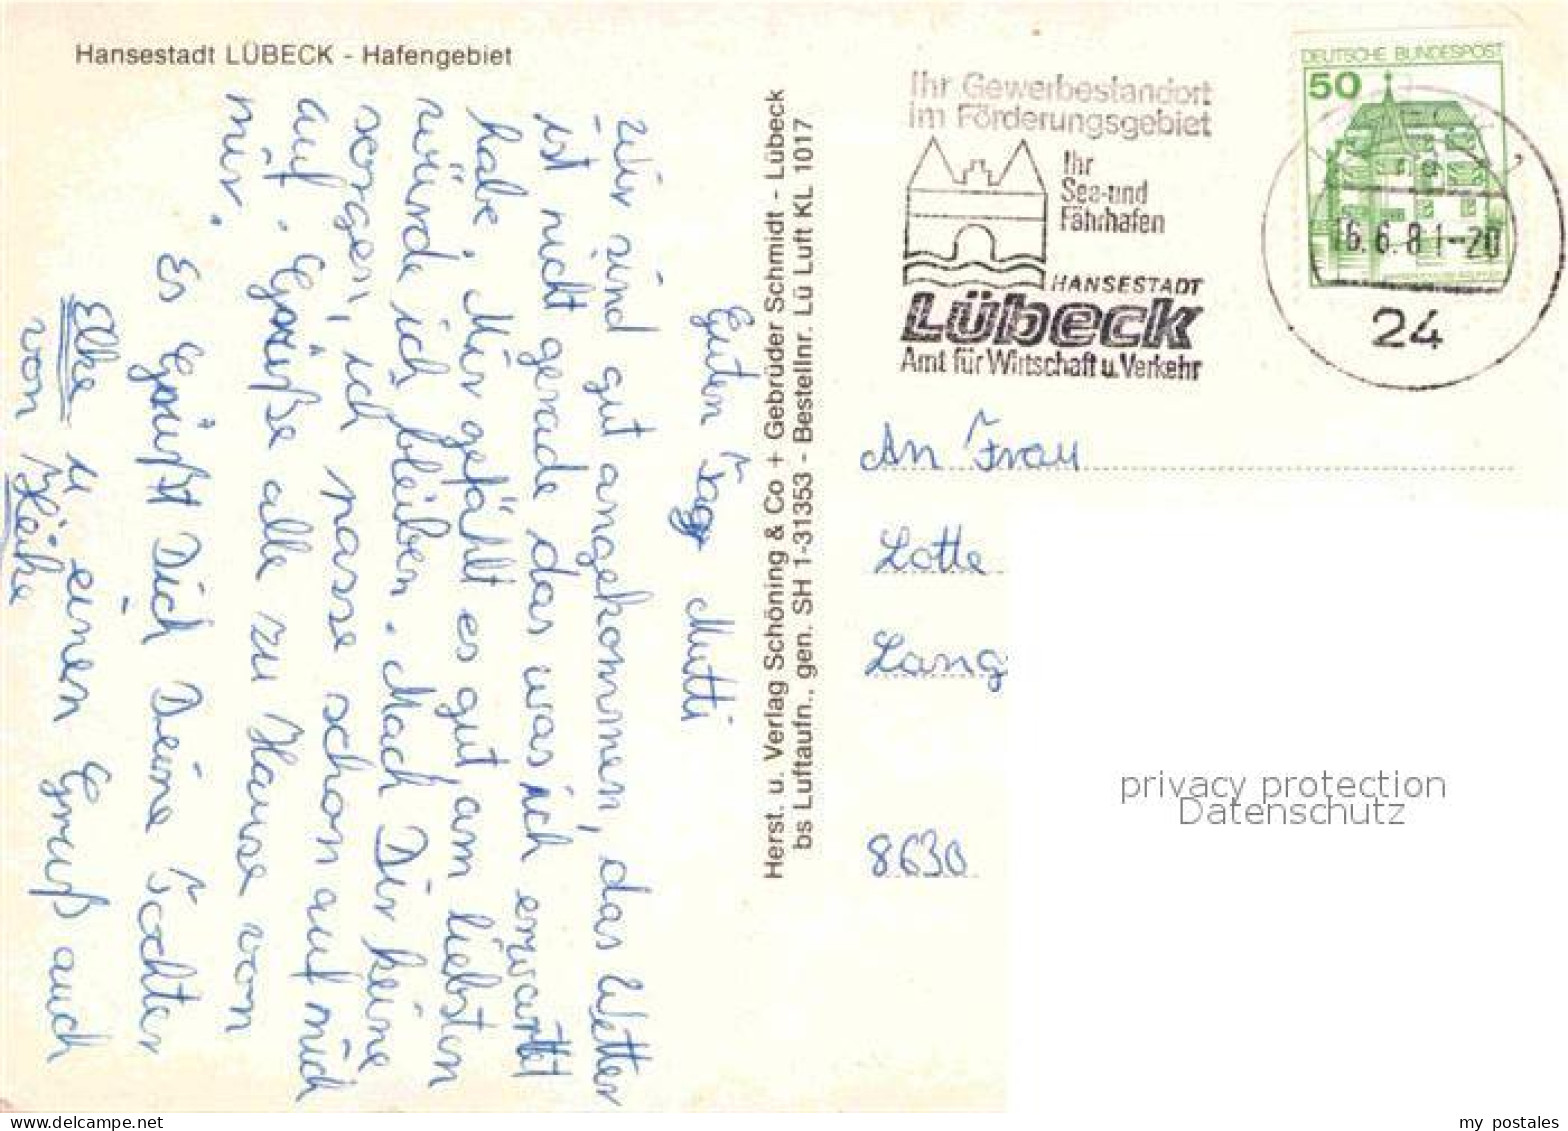 Hansestadt LÜBECK - Hafengebiet
Guten Tag Mutti
Wir sind gut angekommen, das Wetter
ist nicht gerade das was ich erwartet
habe. Mir gefählt es gut am liebsten
würde ich bleiben. Mach Dir keine
sorgen, ich passe schon auf mich
auf. Grüße alle zu Hause von
mir.
Es Grüßt Dich Deine Tochter
Elke u einen Gruß auch
von Heike
Herst. u. Verlag Schöning & Co + Gebrüder Schmidt - Lübeck
bs Luftaufn., gen. SH 1-31353 - Bestellnr. Lü Luft KL 1017
Ihr Gewerbestandort
im Förderungsgebiet
Ihr
See- und
Fährhafen
HANSESTADT
Lübeck
Amt für Wirtschaft u. Verkehr
DEUTSCHE BUNDESPOST
50
16.6.81-20
24
An Frau
Lotte
Lang
8630
privacy protection
Datenschutz
my postales